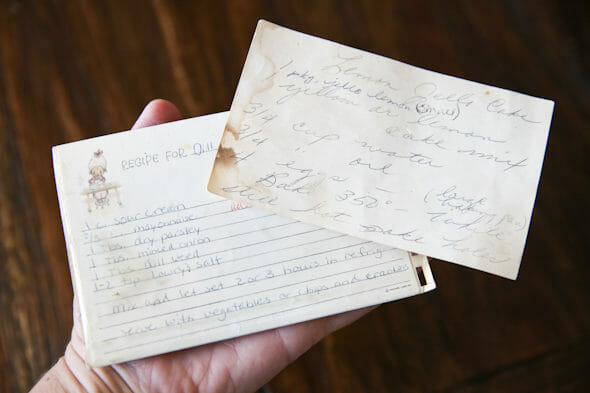 Lemon Jello Cake
1 pkg. jello lemon (small)
yellow or lemon
cake mix
3/4 cup water
3/4 " oil
4 eggs
Bake 350° - (large
while
still hot poke holes
RECIPE FOR Dill
1 c. sour cream
mayonnaise
1 Tbs. dry parsley
1 Tbs. minced onion
1 Tbs. dill weed
1-2 tsp Lawry's salt
Mix and let set 2 or 3 hours in refrig
serve with vegetables or chips and crackers